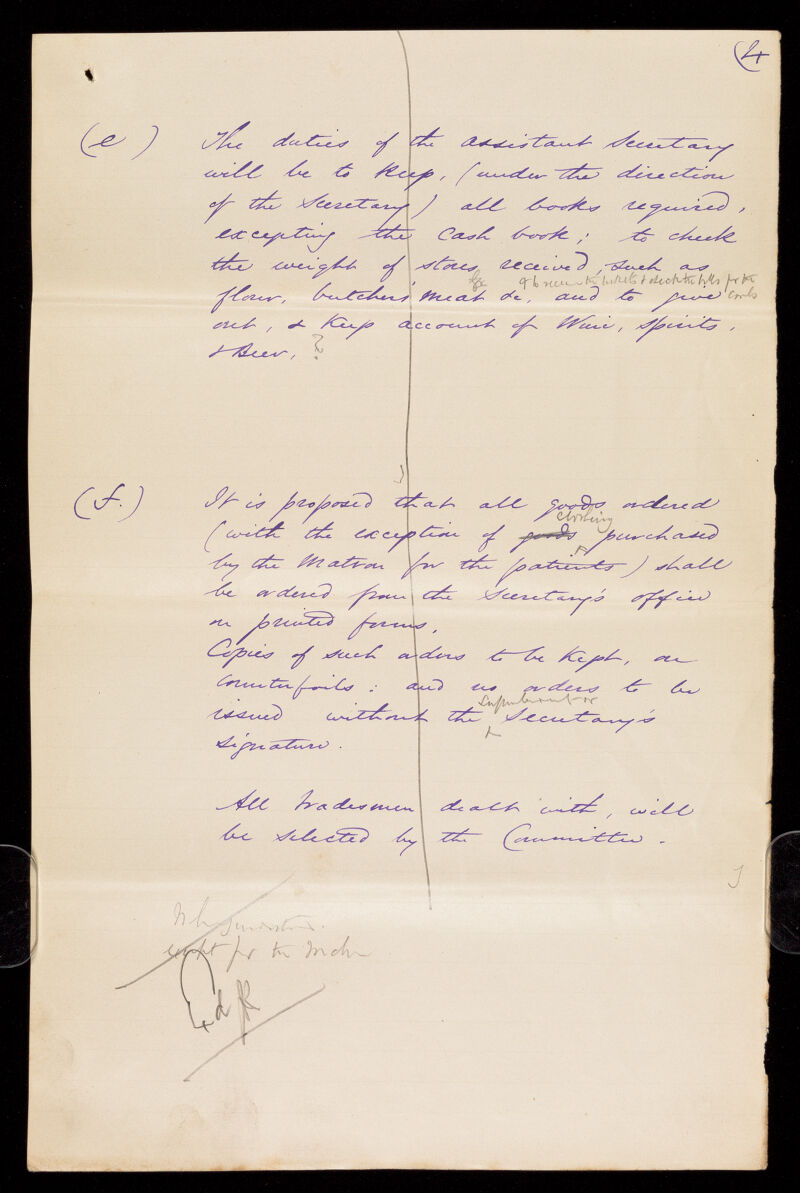 (4
(e) The duties of the assistant Secretary
will be to keep, (under the direction
of the Secretary) all books required,
excepting the Cash book; to check
the weight of stores received, such as
& to receive the tickets & check the bills for the
flour, butchers' meat &c, and to give coals
out, & keep account of Wine, Spirits,
& Beer. ?
(f.) It is proposed that all goods ordered
clothing
(with the exception of goods purchased
by the Matron for the patients) shall
be ordered from the Secretary's office
on printed forms.
Copies of such orders to be kept, on
counterfoils: and no orders to be
issued without the Secretary's
signature.
All tradesmen dealt with, will
be selected by the Committee.
except for the